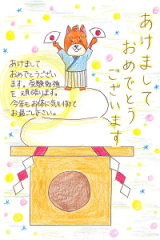 あけまして
おめでとう
ございます
あけまして
おめでとうござい
ます。受験勉強
を頑張ります。
今年もお体に気を付けて
お過ごし下さい。